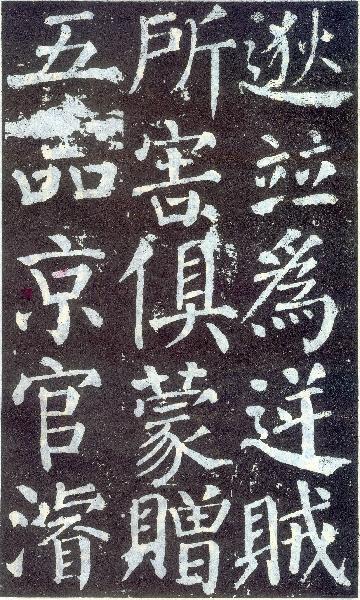 逖並為逆賊
所害俱蒙贈
五品京官濬